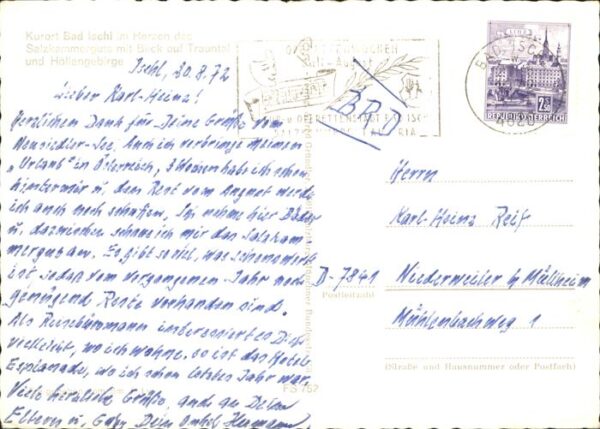 Kurort Bad Ischl im Herzen des
Salzkammerguts mit Blick auf Trauntal
und Höllengebirge
Ischl, 20.8.72
Lieber Karl-Heinz!
Herzlichen Dank für Deine Grüße vom
Neusiedler-See. Auch ich verbringe meinen
"Urlaub" in Österreich, 3 Wochen habe ich schon
hinter mir u. den Rest vom August werde
ich auch noch schaffen. Ich nehme hier Bäder
u. dazwischen schaue ich mir das Salzkam
mergut an. Es gibt soviel, was sehenswert
ist, sodaß vom vergangenen Jahr noch
genügend Reste vorhanden sind.
Als Reisebüromann interessiert es Dich
vielleicht, wo ich wohne, es ist das Hotel
Esplanade, wo ich schon letztes Jahr war.
Viele herzliche Grüße, auch an Deine
Eltern u. Dein Onkel Hermann
OPERETTENWOCHEN
BAD ISCHL
4820
LINZ
2.50
REPUBLIK ÖSTERREICH
BRD
Herrn
Karl-Heinz Reif
D-7841 Niederweiler b. Müllheim
Postleitzahl
Mühlenbachweg 1
(Straße und Hausnummer oder Postfach)
FS 762